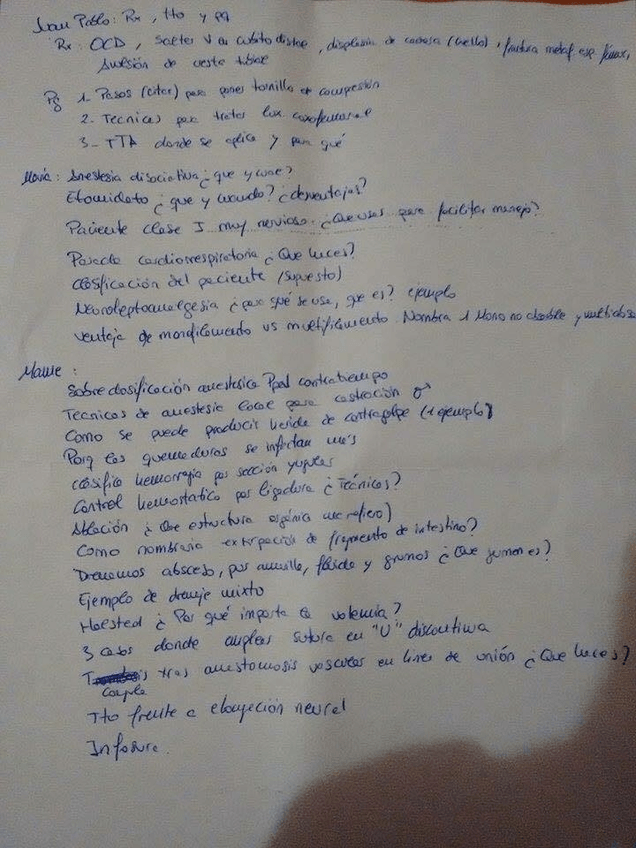 Juan Pablo: Rx, tto y pq
Rx: OCD, Salter V en cubito distal, displasia de cadera (cuello), fractura metaf esp femur,
Avulsión de cresta tibial
Pq 1- Pasos (citar) para poner tornillo en compresión
2- Tecnicas para tratar lux coxofemoral
3- TTA donde se aplica y para qué
María: Anestesia disociativa ¿que y cual?
Etomidato ¿que y cuando? ¿desventajas?
Paciente clase I muy nervioso. ¿Que usas para facilitar manejo?
Parada cardiorrespiratoria ¿Que haces?
clasificación del paciente (supuesto)
Neuroleptoanalgesia ¿para qué se usa, que es? ejemplo
Ventaja de monofilamento vs multifilamento. Nombra 1 Mono no absorble y
Maite:
Sobredosificación anestesica Ppal contratiempo
Tecnicas de anestesia local para castración ♂
Como se puede producir herida de contragolpe (1 ejemplo)
Porq las quemaduras se infectan más
clasifica hemorragia por sección yugular
Control hemostatico por ligadura ¿Técnicas?
Ablación ¿Que estructura orgánica me refiero)
Como nombraria extirpación de fragmento de intestino?
Drenamos absceso, pus amarillo, fluido y grumos ¿Que germen es?
Ejemplo de drenaje mixto
Halsted ¿Por qué importa la volemia?
3 casos donde empleas sutura en "U" discontinua
tras anastomosis vascular en linea de unión ¿Que haces?
Tto frente a elongación neural
Infosura.